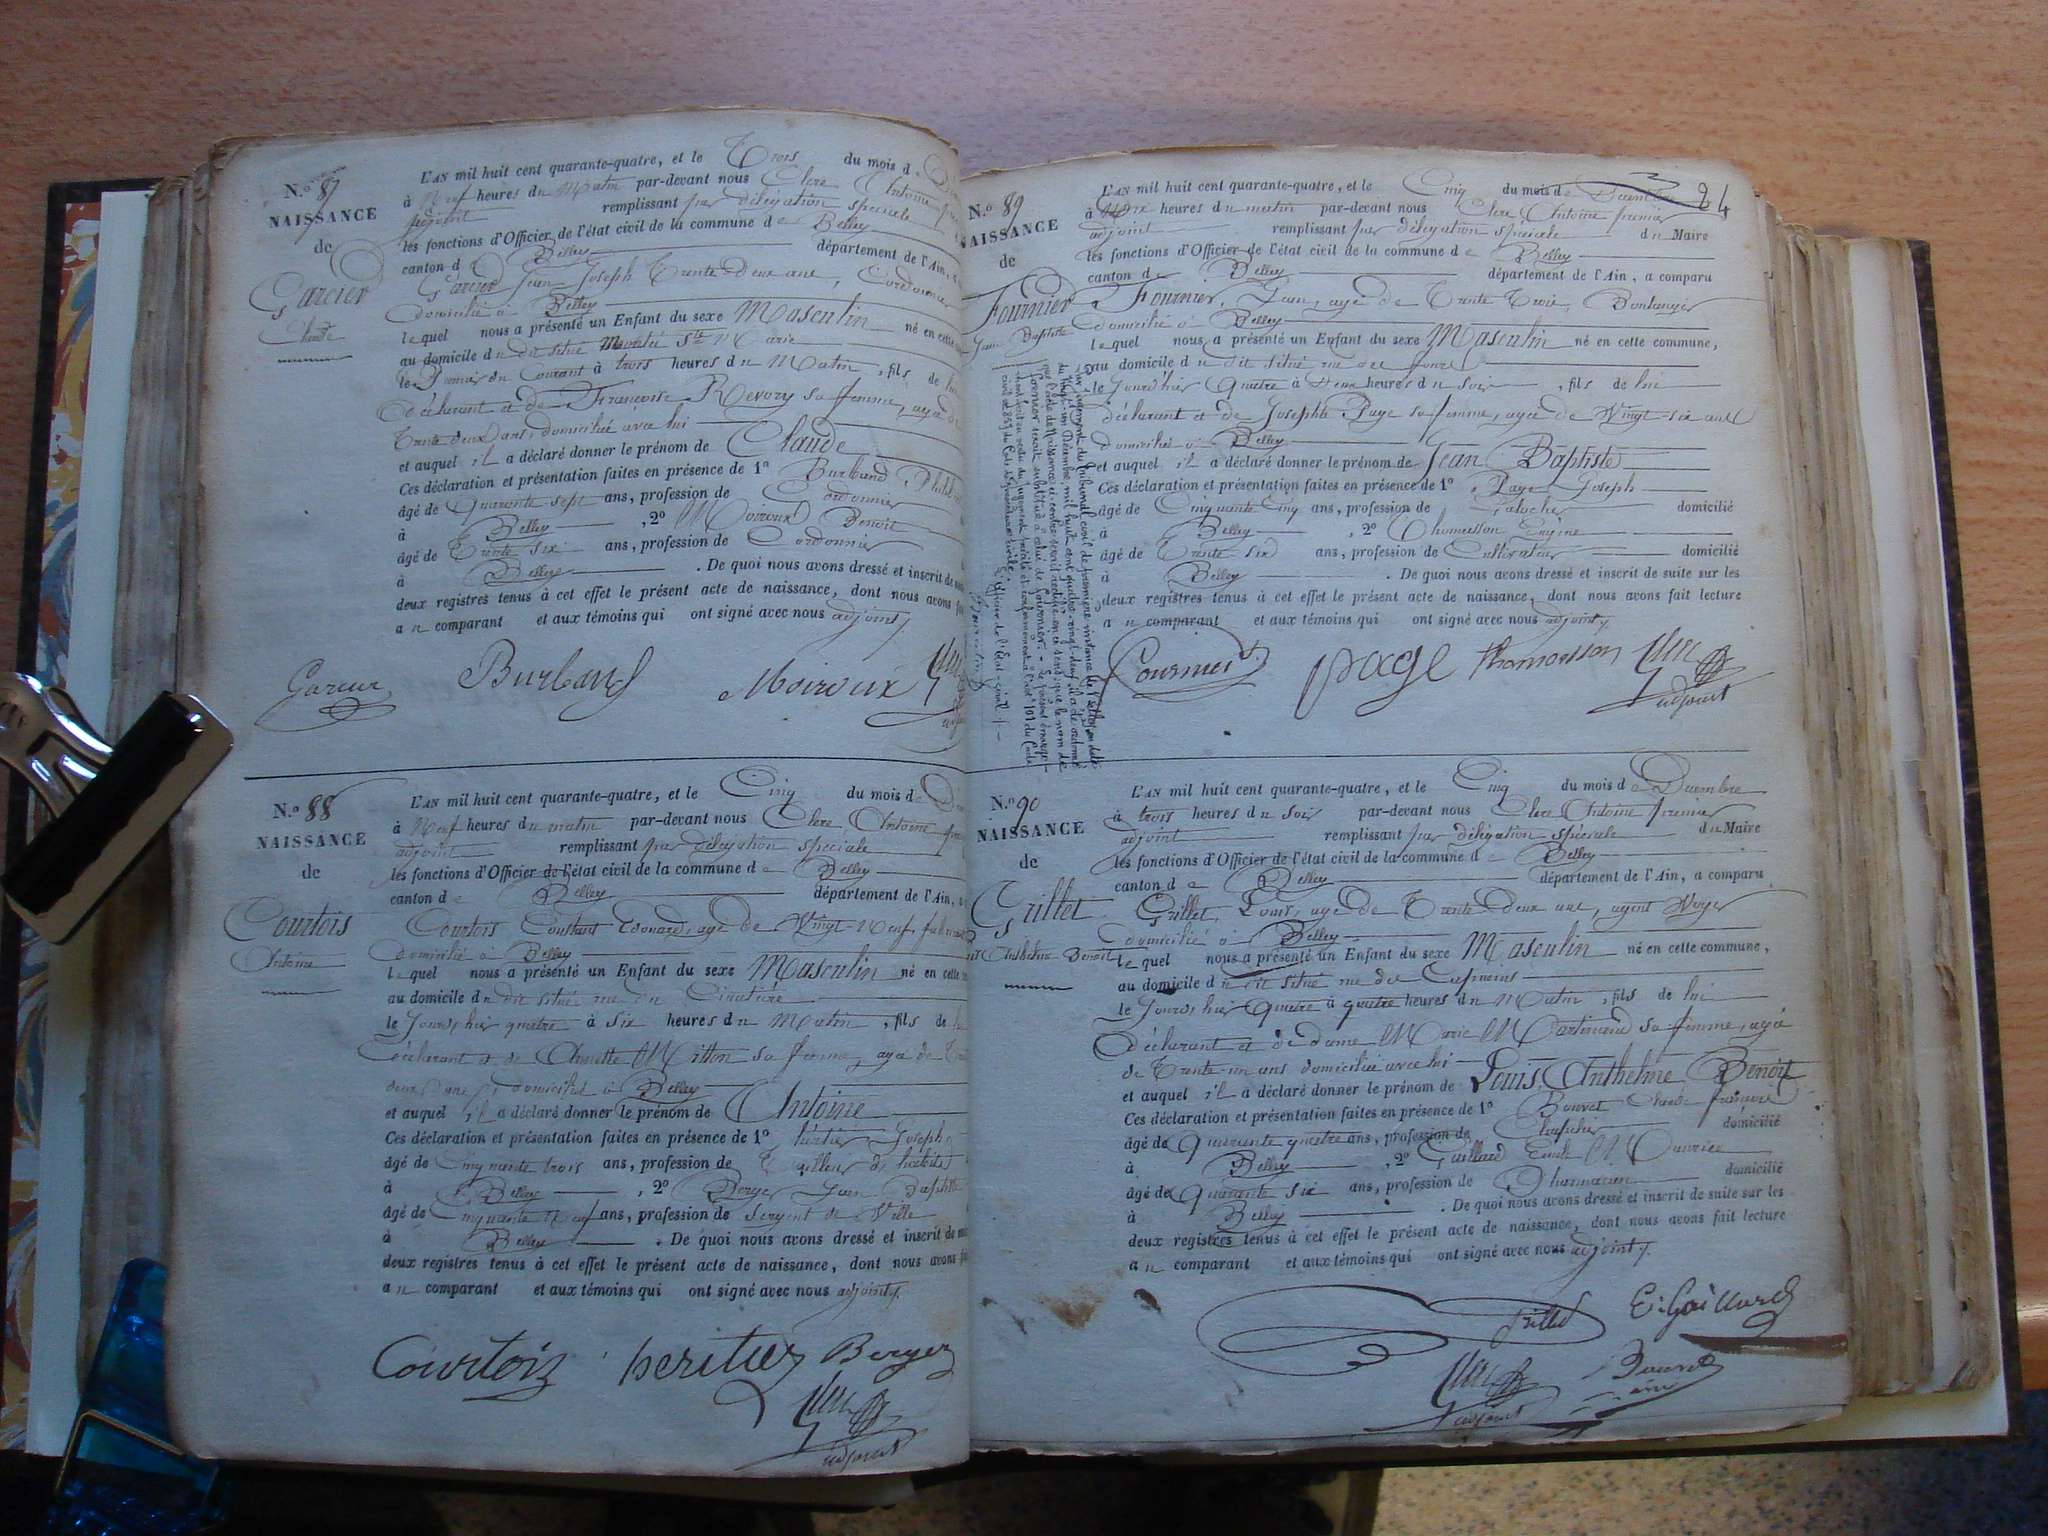 N.º 87
NAISSANCE
de
Garcier
Claude
L'AN mil huit cent quarante-quatre, et le Trois du mois d
à Neuf heures du Matin par-devant nous Clerc Antoine
adjoint remplissant par délégation spéciale
les fonctions d'Officier de l'état civil de la commune de Belley
canton de Belley département de l'Ain,
Garcier Jean Joseph Trente Deux ans, Cordonnier
domicilié à Belley
lequel nous a présenté un Enfant du sexe Masculin né en cette
au domicile du dit situé Montée Ste Marie
le Premier du Courant à trois heures du Matin, fils de lui
déclarant et de Françoise Revory sa femme, agée de
Trente deux ans, domiciliée avec lui
et auquel il a déclaré donner le prénom de Claude
Ces déclaration et présentation faites en présence de 1º Burband
âgé de Quarante sept ans, profession de Cordonnier
à Belley, 2º Moiroux Benoit
âgé de Trente six ans, profession de Cordonnier
à Belley. De quoi nous avons dressé et inscrit de
deux registres tenus à cet effet le présent acte de naissance, dont nous avons
au comparant et aux témoins qui ont signé avec nous adjoint
Burband Moiroux
N.º 88
NAISSANCE
de
Courtois
Antoine
L'AN mil huit cent quarante-quatre, et le Cinq du mois de
à Neuf heures du matin par-devant nous Clerc Antoine
adjoint remplissant par délégation spéciale
les fonctions d'Officier de l'état civil de la commune de Belley
canton de Belley département de l'Ain,
Courtois Constant Edouard, agé de Vingt-Neuf,
domicilié à Belley
lequel nous a présenté un Enfant du sexe Masculin né en cette
au domicile du dit situé rue du Cimetière
le Jourd'hier quatre à Six heures du Matin, fils de
déclarant et de Annette Millon sa femme, agée de
deux ans, domicilié à Belley
et auquel il a déclaré donner le prénom de Antoine
Ces déclaration et présentation faites en présence de 1º héritier Joseph
âgé de Cinquante trois ans, profession de Tailleur d'habits
à Belley, 2º Berger Jean Baptiste
âgé de Cinquante Neuf ans, profession de Sergent de Ville
à Belley. De quoi nous avons dressé et inscrit de
deux registres tenus à cet effet le présent acte de naissance, dont nous avons
au comparant et aux témoins qui ont signé avec nous adjoint
Courtois heritier Berger
Clerc
adjoint
84
N.º 89
NAISSANCE
de
Fournier
Jean Baptiste
L'AN mil huit cent quarante-quatre, et le Cinq du mois de Décembre
à heures du matin par-devant nous Clerc Antoine premier
adjoint remplissant par délégation spéciale du Maire
les fonctions d'Officier de l'état civil de la commune de Belley
canton de Belley département de l'Ain, a comparu
Fournier, Jean, agé de Trente Trois, Boulanger
domicilié à Belley
lequel nous a présenté un Enfant du sexe Masculin né en cette commune,
au domicile du dit situé rue des fours
le Jourd'hier Quatre à Deux heures du soir, fils de lui
déclarant et de Josephte Page sa femme, agée de Vingt-six ans
domicilié à Belley
et auquel il a déclaré donner le prénom de Jean Baptiste
Ces déclaration et présentation faites en présence de 1º Page Joseph
âgé de Cinquante Cinq ans, profession de domicilié
à Belley, 2º Thomasson Eugène
âgé de Trente-six ans, profession de Cultivateur domicilié
à Belley. De quoi nous avons dressé et inscrit de suite sur les
deux registres tenus à cet effet le présent acte de naissance, dont nous avons fait lecture
au comparant et aux témoins qui ont signé avec nous adjoint
page thomasson Clerc
adjoint
Par Jugement du Tribunal civil de première instance de
du Vingt-un Décembre, mil huit cent quatre-vingt-deux, il a été ordonné
que l'acte de Naissance ci-contre serait rectifié en ce sens, que le nom de
serait substitué à celui de Fournier.
l'art. 101 du Code
L'officier de l'Etat-civil
N.º 90
NAISSANCE
de
Grillet
Louis Anthelme Benoit
L'AN mil huit cent quarante-quatre, et le Cinq du mois de Décembre
à trois heures du soir par-devant nous Clerc Antoine premier
adjoint remplissant par délégation spéciale du Maire
les fonctions d'Officier de l'état civil de la commune de Belley
canton de Belley département de l'Ain, a comparu
Grillet, Louis, agé de Trente Deux ans, agent Voyer
domicilié à Belley
lequel nous a présenté un Enfant du sexe Masculin né en cette commune,
au domicile du dit situé rue des Capucins
le Jourd'hier Quatre à quatre heures du Matin, fils de lui
déclarant et de dame Marie Martinand sa femme, agée
de Trente-un ans domiciliée avec lui
et auquel il a déclaré donner le prénom de Louis, Anthelme Benoit
Ces déclaration et présentation faites en présence de 1º Bouvet Claude françois
âgé de Quarante quatre ans, profession de Chapelier domicilié
à Belley, 2º Gaillard Emile Maurice
âgé de Quarante six ans, profession de Pharmacien domicilié
à Belley. De quoi nous avons dressé et inscrit de suite sur les
deux registres tenus à cet effet le présent acte de naissance, dont nous avons fait lecture
au comparant et aux témoins qui ont signé avec nous adjoint
Grillet E. Gaillard
Clerc Bouvet
adjoint